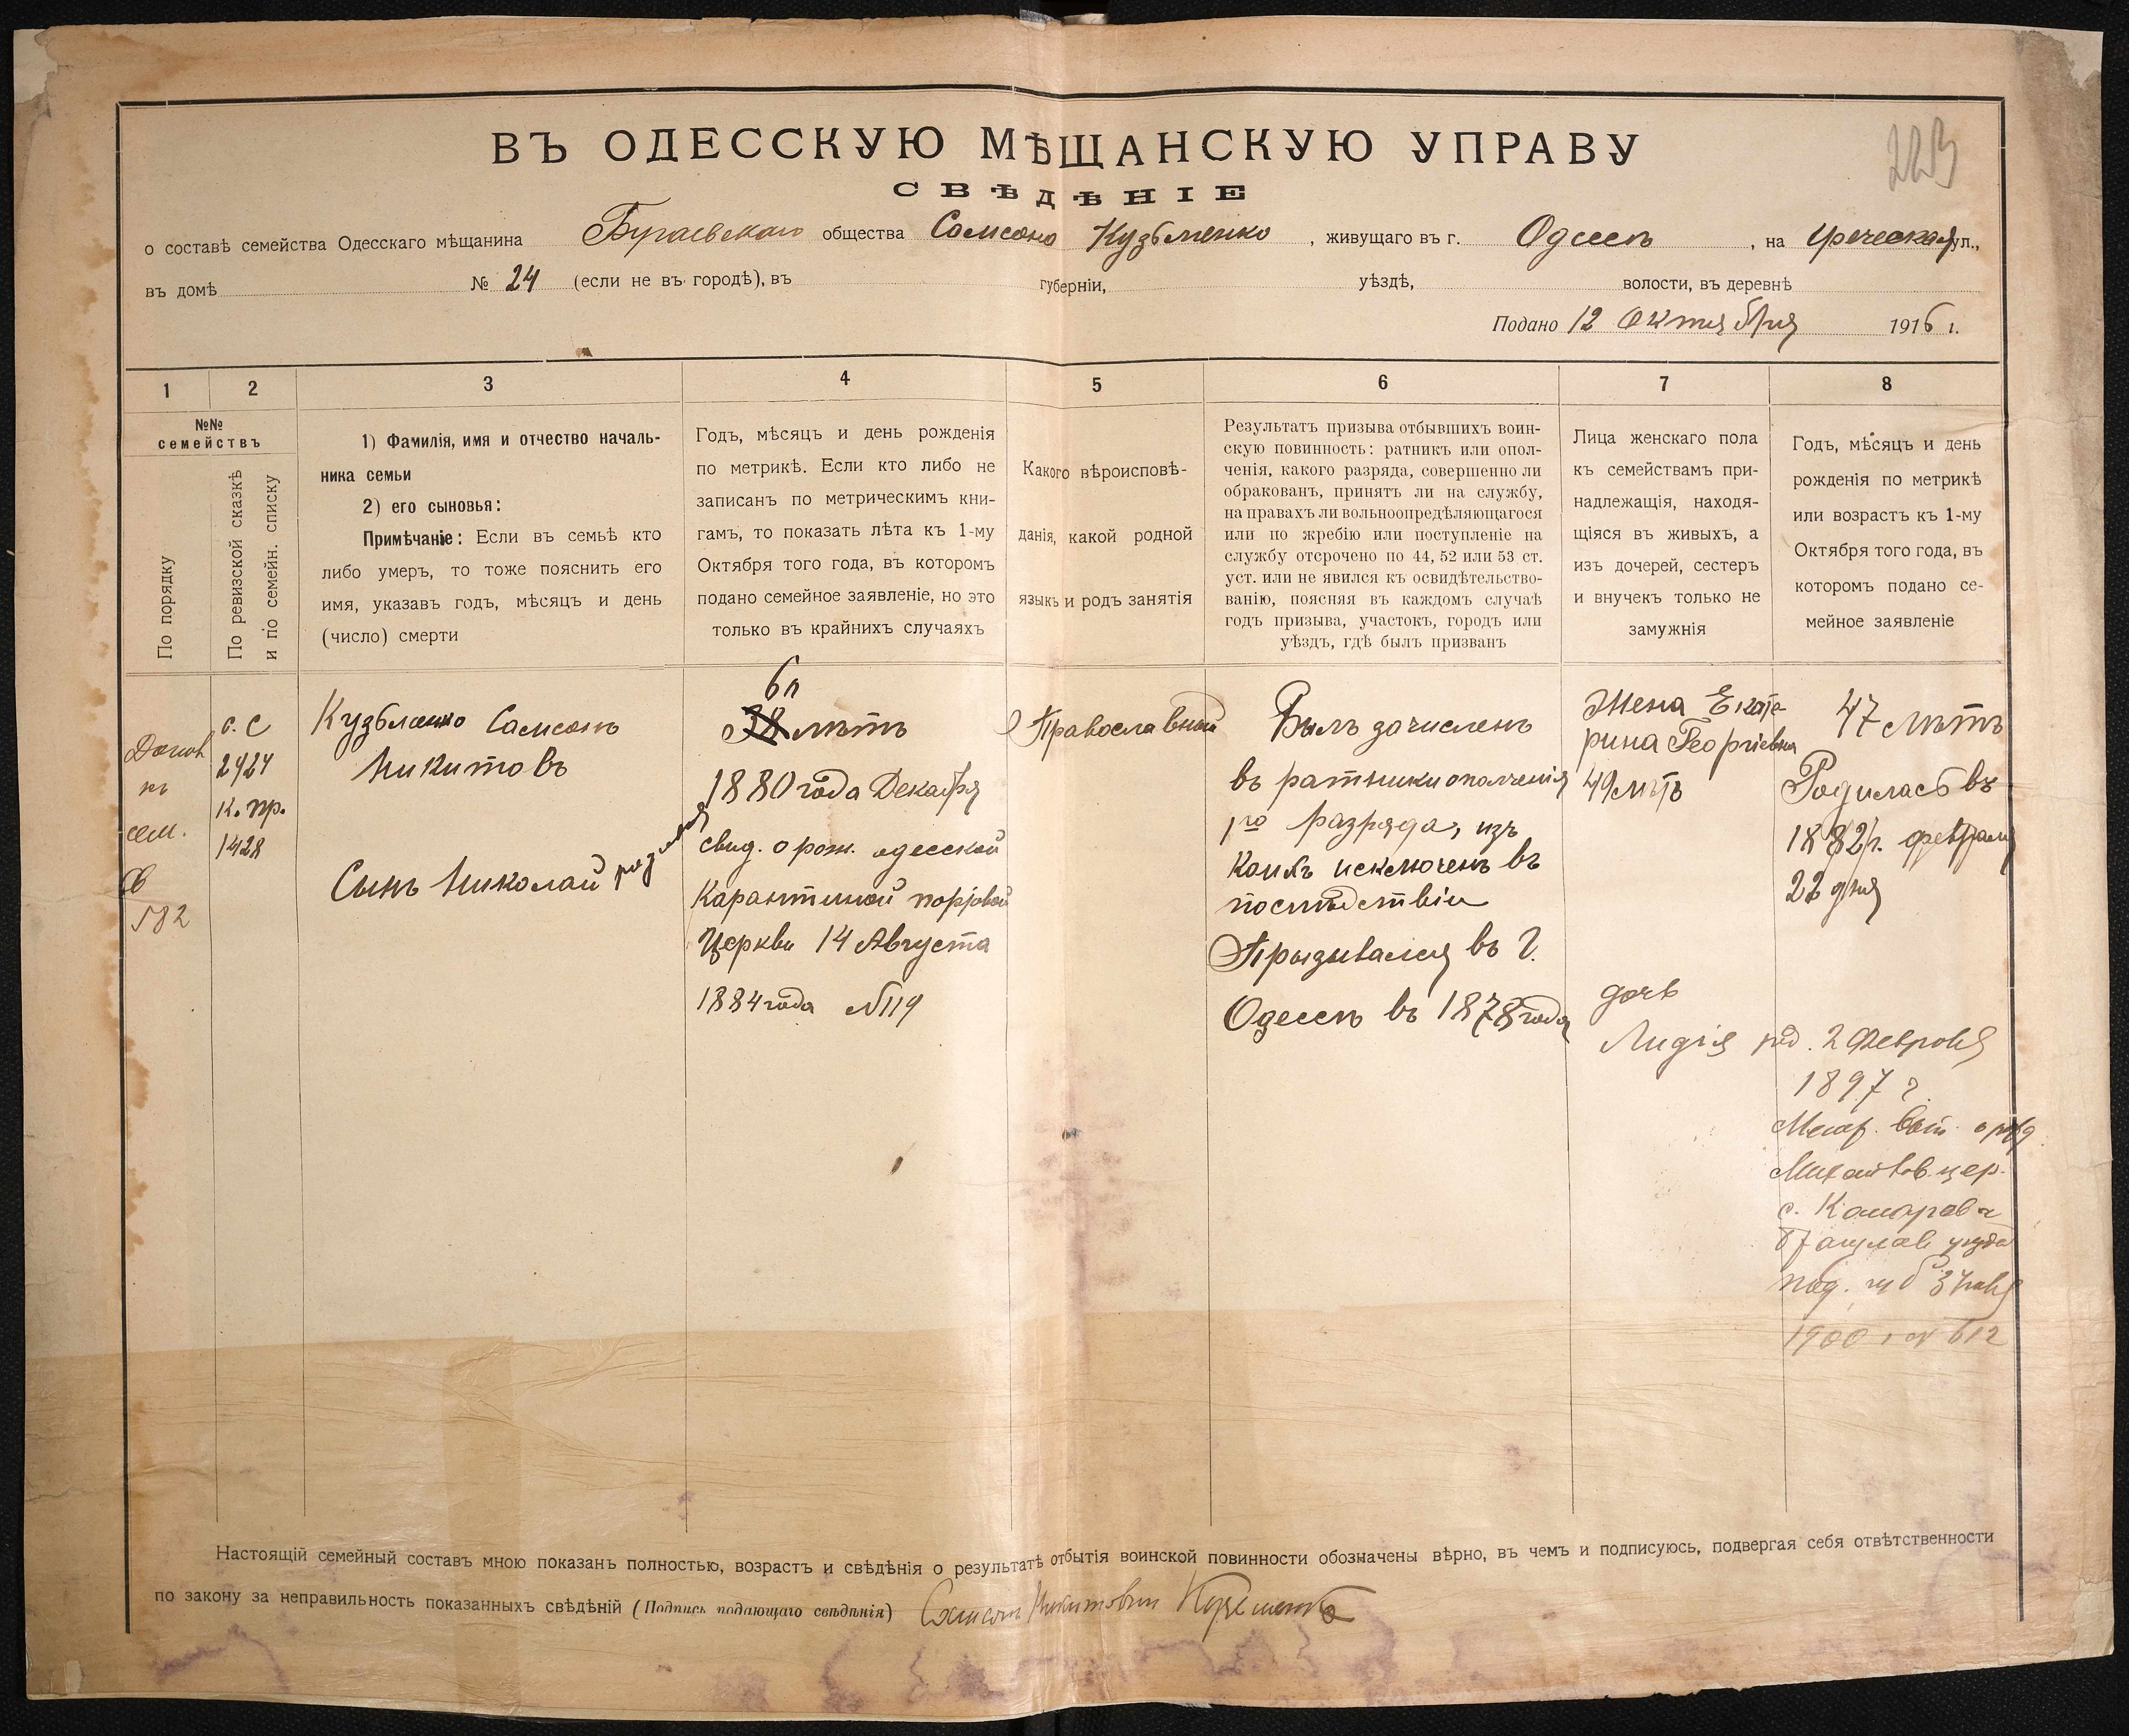 223
ВЪ ОДЕССКУЮ МѢЩАНСКУЮ УПРАВУ
СВѢДѢНІЕ
о составѣ семейства Одесскаго мѣщанина Бугаевскаго общества Самсона Кузьменко, живущаго въ г. Одессѣ, на Греческая ул.,
въ домѣ № 24 (если не въ городѣ), въ губерніи, уѣздѣ, волости, въ деревнѣ
Подано 12 Октября 1916 г.
1 2 3 4 5 6 7 8
№№
семействъ
По порядку
По ревизской сказкѣ
и по семейн. списку
1) Фамилія, имя и отчество началь-
ника семьи
2) его сыновья:
Примѣчаніе: Если въ семьѣ кто
либо умеръ, то тоже пояснить его
имя, указавъ годъ, мѣсяцъ и день
(число) смерти
Годъ, мѣсяцъ и день рожденія
по метрикѣ. Если кто либо не
записанъ по метрическимъ кни-
гамъ, то показать лѣта къ 1-му
Октября того года, въ которомъ
подано семейное заявленіе, но это
только въ крайнихъ случаяхъ
Какого вѣроисповѣ-
данія, какой родной
языкъ и родъ занятія
Результатъ призыва отбывшихъ воин-
скую повинность: ратникъ или опол-
ченія, какого разряда, совершенно ли
обракованъ, принятъ ли на службу,
на правахъ ли вольноопредѣляющагося
или по жребію или поступленіе на
службу отсрочено по 44, 52 или 53 ст.
уст. или не явился къ освидѣтельство-
ванію, поясняя въ каждомъ случаѣ
годъ призыва, участокъ, городъ или
уѣздъ, гдѣ былъ призванъ
Лица женскаго пола
къ семействамъ при-
надлежащія, находя-
щіяся въ живыхъ, а
изъ дочерей, сестеръ
и внучекъ только не
замужнія
Годъ, мѣсяцъ и день
рожденія по метрикѣ
или возрастъ къ 1-му
Октября того года, въ
котораомъ подано се-
мейное заявленіе
сем.
582
с. с
2424
к. пр.
1428
Кузьменко Самсонъ
Никитовъ
Сынъ Николай
лѣтъ
1880 года Декабря
свид. о рож. одесской
Карантинной портовой
Церкви 14 Августа
1884 года №119
Православный
Былъ зачисленъ
въ ратники ополченія
1го разряда, изъ
коихъ исключенъ въ
послѣдствіи
Призывался въ г.
Одессѣ въ 1878 года
Жена Екате-
рина Георгіевна
49 лѣтъ
дочь
Лидія
47 лѣтъ
Родилась въ
1882 г. февраля
22 дня
род. 2 Февраля
1897 г.
Михайлов. цер.
с. Комаров
под.
1900 г. № 612
Настоящій семейный составъ мною показанъ полностью, возрастъ и свѣдѣнія о результатѣ отбытія воинской повинности обозначены вѣрно, въ чемъ и подписуюсь, подвергая себя отвѣтственности
по закону за неправильность показанныхъ свѣдѣній (Подпись подающаго свѣдѣнія) Самсонъ Никитовичъ Кузьменко